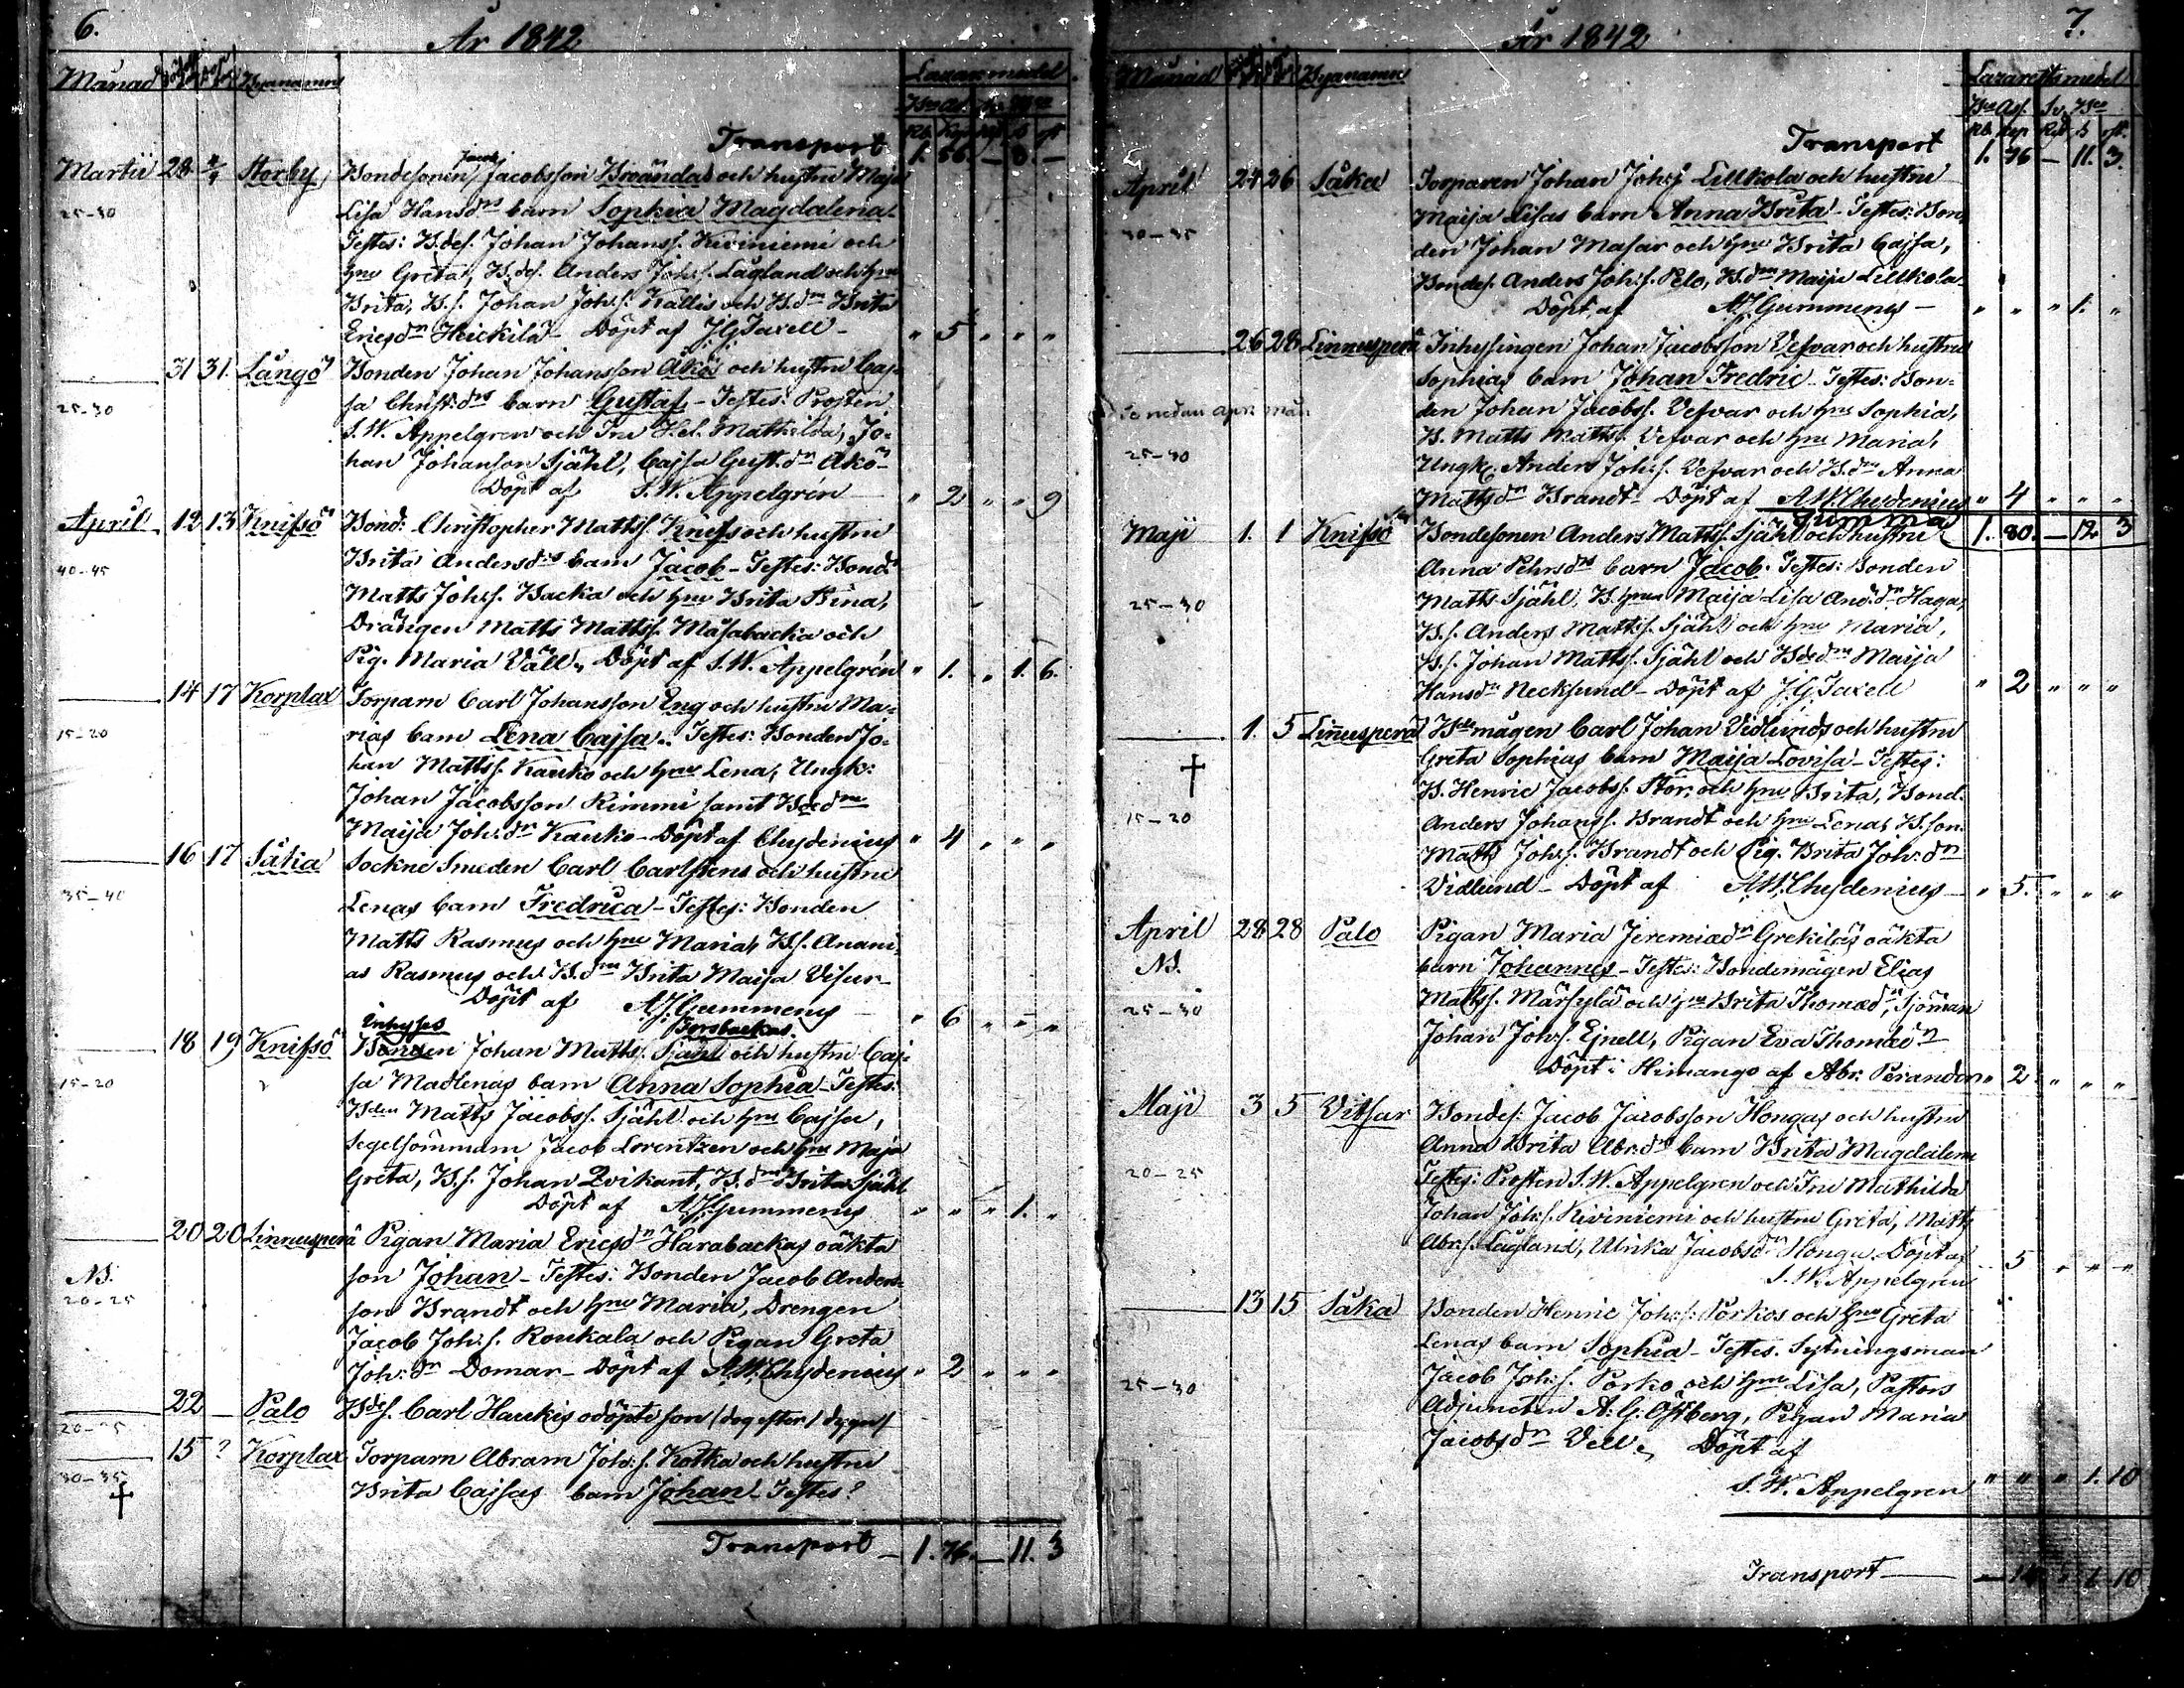 6.
År 1842
Månad Byanamn Lazar. medel
Transport 1. 56. — 8. —
Martii 28 2/4 Storby Bondesonen Jacob Jacobsson Broändas och hustru Maja
25-30 Lisa Hansdrs barn Sophia Magdalena.
Testes: B.des. Johan Johanss. Kiviniemi och
hu Greta, B.des. Anders Joh:s. Lågland och hu
Brita, B.s. Johan Joh:s. Kallis och B.dn Brita
Ericsdn Heickilä - Döpt af J.G. Taxell - " 5 " " "
31 31. Långö Bonden Johan Johansson Åkös och hustru Caj-
25-30 sa Christ:drs barn Gustaf - Testes: Prosten
S.W. Appelgren och Fru Hel. Mathilda, Jo-
han Johanson Sjähl, Cajsa Gust.dn Åkö -
Döpt af S.W. Appelgrén " 2 " " 9
April 12 13 Knifsö Bond: Christopher Matts. Knifs och hustru
40-45 Brita Andersdrs barn Jacob - Testes: Bond.
Matts Joh:s. Backa och hu Brita Stina,
Drängen Matts Mattss. Måsabacka och
Pig. Maria Väll. Döpt af S.W. Appelgrén " 1. " 1. 6.
14 17 Korplax Torparn Carl Johansson Eng och hustru Ma-
15-20 rias barn Lena Cajsa. Testes: Bonden Jo-
han Mattss. Kauko och hu Lena, Ungk:
Johan Jacobsson Rimmi samt B.dn
Maija Joh:dr Kauko - Döpt af Chydenius " 4 " " "
16 17 Såka Sockne Smeden Carl Carlstens och hustru
35-40 Lenas barn Fredrica - Testes: Bonden
Matts Rasmus och hu Maria, B.s. Anani-
as Rasmus och B.dn Brita Maija Visur -
Döpt af A.J. Gummerus " 6 " " "
Inhyses Torsbackas
18 19 Knifsö Bonden Johan Mattss. Sjähl och hustru Caj-
15-20 sa Madlenas barn Anna Sophia - Testes:
B.den Matts Jacobss. Sjähl och hu Cajsa,
Segelsömmarn Jacob Lorentzen och hu Maja
Greta, B.s. Johan Qvikant, B.dn Brita Sjähl
Döpt af A.J. Gummerus " " " 1. "
20 20 Linnusperä Pigan Maria Ericsdn Harabackas oäkta
NB. son Johan - Testes: Bonden Jacob Anders-
20-25 son Brandt och hu Maria, Drengen
Jacob Joh:s. Roukala och Pigan Greta
Joh:dr Domar - Döpt af A.W. Chydenius " 2 " " "
22 — Palo B.des. Carl Haukis odöpte son / dog efter 1 dygn /
20-25
15 ? Korplax Torparn Abram Joh:s. Kotka och hustru
30-35 Brita Caisas barn Johan - Testes?
†
Transport - 1. 76. — 11. 3

År 1842 7.
Månad Byanamn Lazaretts medel
Transport 1. 76 — 11. 3.
April 24 26 Såka Torparen Johan Joh:s. Lillkola och hustru
30-35 Maija Lisas barn Anna Brita - Testes: Bon-
den Johan Masar och hu Brita Cajsa,
Bondes. Anders Joh:s. Pelo, B.dn Maija Lillkola -
Döpt af A.J. Gummerus - " " " 1. "
26 28 Linnusperä Inhysingen Johan Jacobsson Vesvar och hustru
Sophias barn Johan Fredric - Testes: Bon-
Se nedan apr. mån den Johan Jacobss. Vesvar och hus Sophia,
B. Matts Mattss. Vesvar och hu Maria,
25-30 Ungk. Anders Joh:s. Vesvar och B.dn Anna
Mattsdn Brandt - Döpt af A.W. Chydenius " 4 " " "
Summa 1. 80. — 12 3
Maji 1. 1 Knifsö Bondesonen Anders Matts. Sjähl och hustru
Anna Pehrsdrs barn Jacob. Testes: Bonden
25-30 Matts Sjähl, B. hu Maija Lisa And.dn Haga,
B.s. Anders Mattss. Sjähl och hu Maria,
B.s. Johan Mattss. Sjähl och B.dn Maija
Hansdr Necksund - Döpt af J.G. Taxell " 2 " " "
1. 5 Linnusperä B.mågen Carl Johan Vidlunds och hustru
† Greta Sophias barn Maija Lovisa - Testes:
B. Henric Jacobss. Stor och hu Brita, Bond.
15-20 Anders Johanss. Brandt och hu Lena, B.son.
Matts Joh:s. Brandt och Pig. Brita Joh:dn
Vidlund - Döpt af A.W. Chydenius - " 5. " " "
April 28 28 Palo Pigan Maria Jeremiædn Grekiläs oäkta
NB. barn Johannes - Testes: Bondemågen Elias
25-30 Mattss. Märsylä och hu Brita Thomædr, Sjöman
Johan Joh:s. Ejnell, Pigan Eva Thomædn
Döpt i Himango af Abr: Perander " 2 " " "
Maji 3 5 Vitsar Bondes: Jacob Jacobsson Hongas och hustru
Anna Brita Abr:drs barn Brita Magdalena
20-25 Testes: Prosten S.W. Appelgren och Fru Mathilda
Johan Joh:s. Kiviniemi och hustru Greta, Matts
Abr:s. Lågland, Ulrika Jacobsdn Honga Döpt af 5 " " "
S.W. Appelgren
13 15 Såka Bonden Henric Joh:s. Porkos och hu Greta
Lenas barn Sophia - Testes. Sytningsman
25-30 Jacob Joh:s. Porko och hu Lisa, Pastors
Adjuncten A.G. Östberg, Pigan Maria
Jacobsdn Vell. Döpt af
S.W. Appelgren " " " 1. 10
Transport — 14 " 1. 10